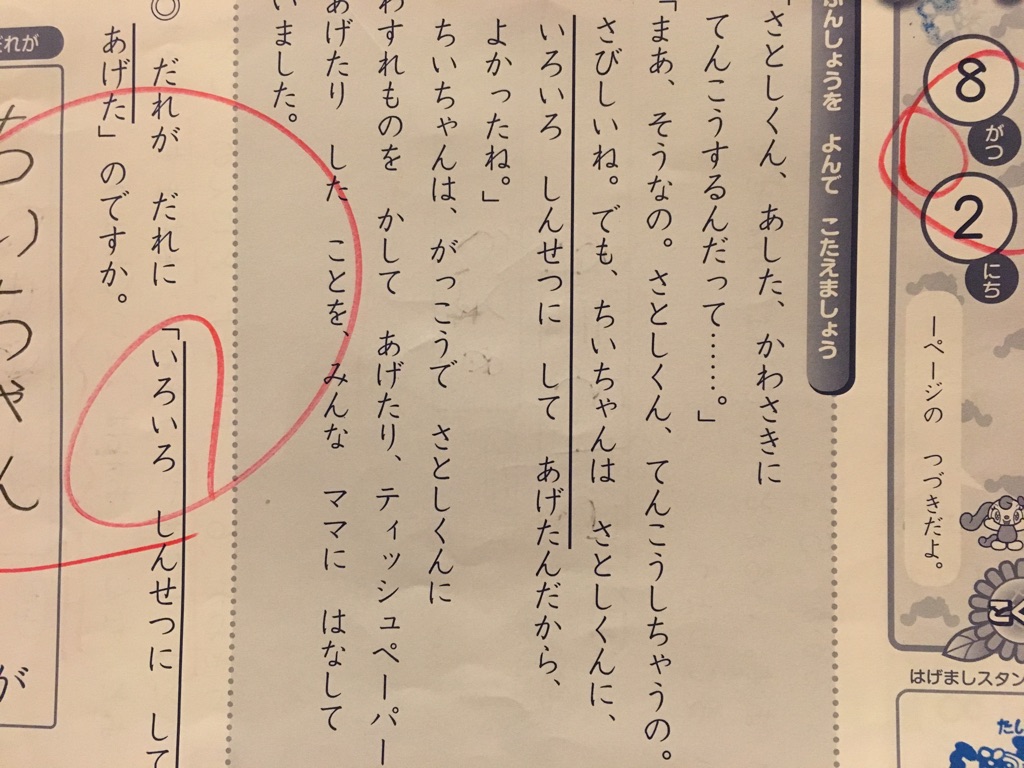 8
がつ
2
にち
一ページの つづきだよ。
こく
はげましスタン
たし
ぶんしょうを よんで こたえましょう
「さとしくん、あした、かわさきに
てんこうするんだって……。」
「まあ、そうなの。さとしくん、てんこうしちゃうの。
さびしいね。でも、ちいちゃんは さとしくんに、
いろいろ しんせつに して あげたんだから、
よかったね。」
ちいちゃんは、がっこうで さとしくんに
わすれものを かして あげたり、ティッシュペーパー
あげたり した ことを、みんな ママに はなして
いました。
◎ だれが だれに 「いろいろ しんせつに して
あげた」のですか。
だれが
ちいちゃん
が